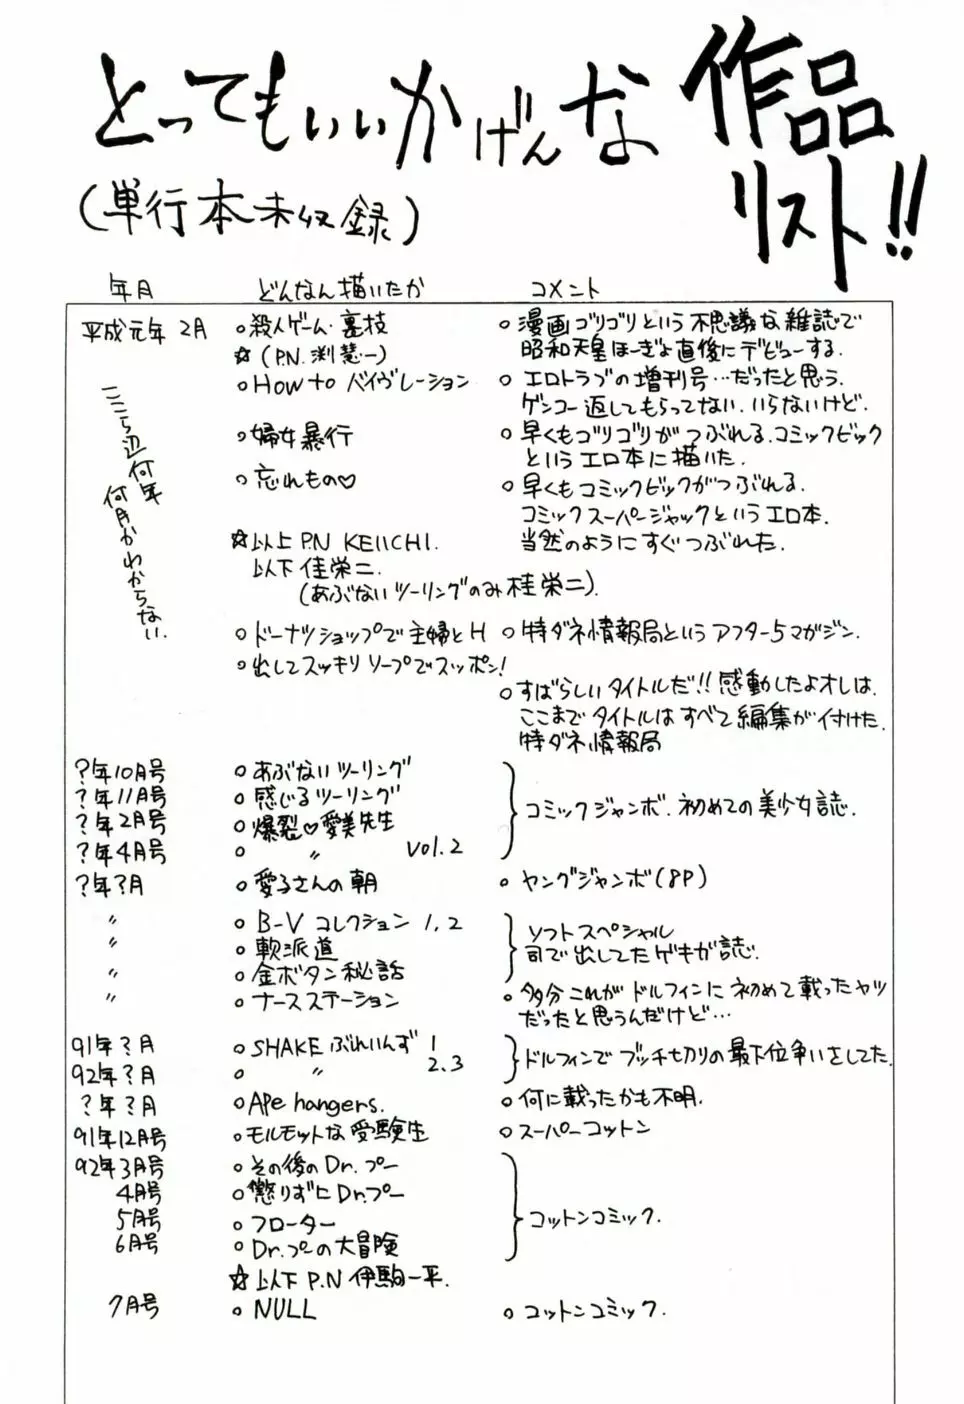 とってもいいかげんな作品リスト!!
(単行本未収録)
年月 どんなん描いたか コメント
平成元年 2月 ○殺人ゲーム・裏技 ○漫画ゴリゴリという不思議な雑誌で
☆(P.N.渕慧一) 昭和天皇ほーぎょ直後にデビューする.
ここら辺何年
何月かわからない.
○How to バイヴレーション ○エロトラブの増刊号…だったと思う.
ゲンコー返してもらってない.いらないけど.
○婦女暴行 ○早くもゴリゴリがつぶれる.コミックビック
というエロ本に描いた.
○忘れもの♡ ○早くもコミックビックがつぶれる.
コミックスーパージャックというエロ本.
☆以上 P.N KEIICHI. 当然のようにすぐつぶれた.
以下 佳栄二.
(あぶないツーリングのみ桂栄二).
○ドーナツショップで主婦とH ○特ダネ情報局というアフター5マガジン.
○出してスッキリソープでスッポン!
○すばらしいタイトルだ!!感動したよオレは.
ここまでタイトルはすべて編集が付けた.
特ダネ情報局
?年10月号 ○あぶないツーリング
?年11月号 ○感じるツーリング
コミックジャンボ.初めての美少女誌.
?年2月号 ○爆裂♡愛美先生
?年4月号 ○ 〃 vol.2
?年?月 ○愛子さんの朝 ○ヤングジャンボ(8P)
〃 ○B-Vコレクション 1,2
ソフトスペシャル
〃 ○軟派道
司で出してたゲキガ誌.
〃 ○金ボタン秘話
〃 ○ナースステーション ○多分これがドルフィンに初めて載ったヤツ
だったと思うんだけど…
91年?月 ○SHAKEぶれいんず 1
92年?月 ○ 〃 2.3
ドルフィンでブッチ切りの最下位争いをしてた.
?年?月 ○Ape hangers. ○何に載ったかも不明.
91年12月号 ○モルモットな受験生 ○スーパーコットン
92年3月号 ○その後のDr.プー
4月号 ○懲りずにDr.プー
5月号 ○フローター
コットンコミック.
6月号 ○Dr.プーの大冒険
☆以下 P.N 伊駒一平.
7月号 ○NULL ○コットンコミック.